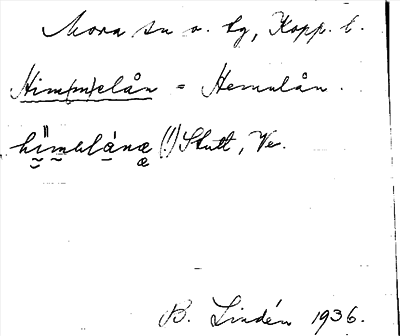 Mora sn o. tg, Kopp. l.
Him(m)elån = Hemulån.
hi̤m̤ulá̱næ (!) Stutt, Ve.
B. Lindén 1936.